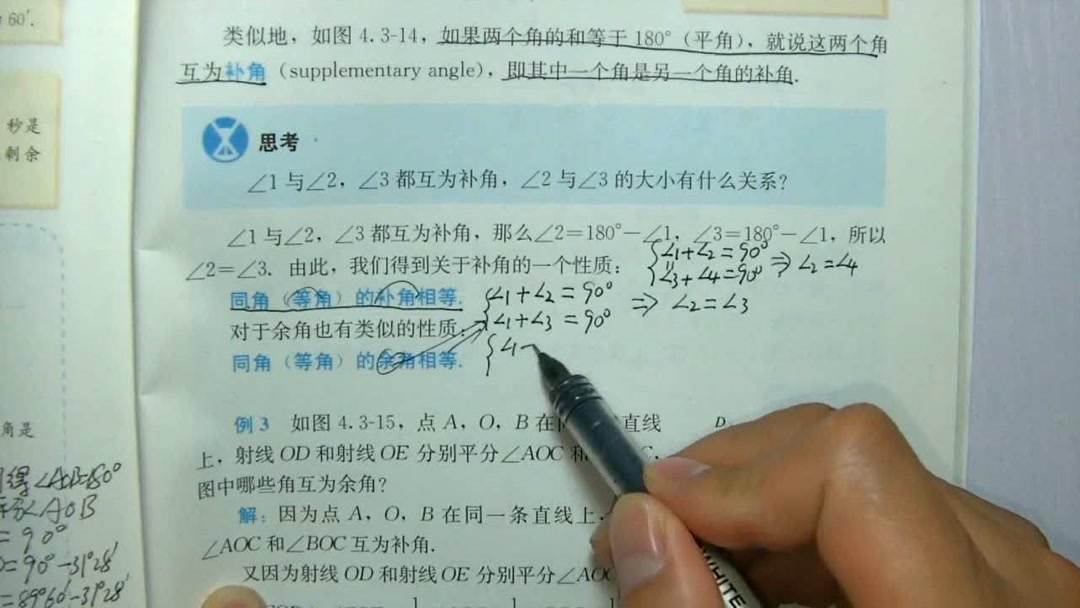 60′.
类似地，如图 4.3-14，如果两个角的和等于 180°（平角），就说这两个角
互为补角（supplementary angle），即其中一个角是另一个角的补角.
秒是
剩余
思考
∠1 与∠2，∠3 都互为补角，∠2 与∠3 的大小有什么关系？
∠1 与∠2，∠3 都互为补角，那么∠2＝180°－∠1，∠3＝180°－∠1，所以
∠2＝∠3. 由此，我们得到关于补角的一个性质：
∠1+∠2=90°
∠3+∠4=90° ⇒ ∠2=∠4
同角（等角）的补角相等.
∠1+∠2=90°
∠1+∠3=90° ⇒ ∠2=∠3
对于余角也有类似的性质：
∠1
同角（等角）的余角相等.
例 3 如图 4.3-15，点 A，O，B 在 直线
上，射线 OD 和射线 OE 分别平分∠AOC 和
图中哪些角互为余角？
解：因为点 A，O，B 在同一条直线上，
∠AOC 和∠BOC 互为补角.
又因为射线 OD 和射线 OE 分别平分∠AOC
角是
得∠AOB=180°
∠AOB
=90°
=90°-31°28′
=89°60′-31°28′
WHITE